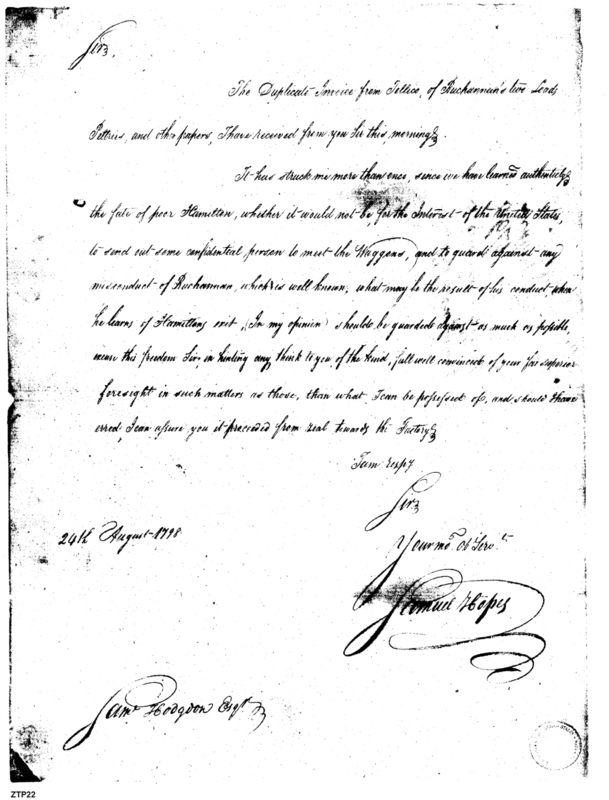 Sir,
The Duplicate Invoice from Tellico, of Buchannun's two Loads
Peltries, and other papers, I have received from you Sir this, morning
It has struck me more than once, since we have learned authenticly
the fate of poor Hamelton, whether it would not be for the Interest of the United States,
to send out some confidential person to meet the Waggons, and to guard against any
misconduct of Buchannan, which is well known; what may be the result of his conduct when
he learns of Hameltons exit (In my opinion) should be guarded against as much as possible,
excuse this freedom Sir, in hinting any think to you, of the kind, full well convinced of your far superior
foresight in such matters as those, than what I can be possessed of, and should I have
erred, I can assure you it proceeded from zeal towards the Factory
I am respy
Sir
Your mo. Ob Servt.
Samuel Hopes
24th August 1798
Saml. Hodgdon Esqr.
ZTP22